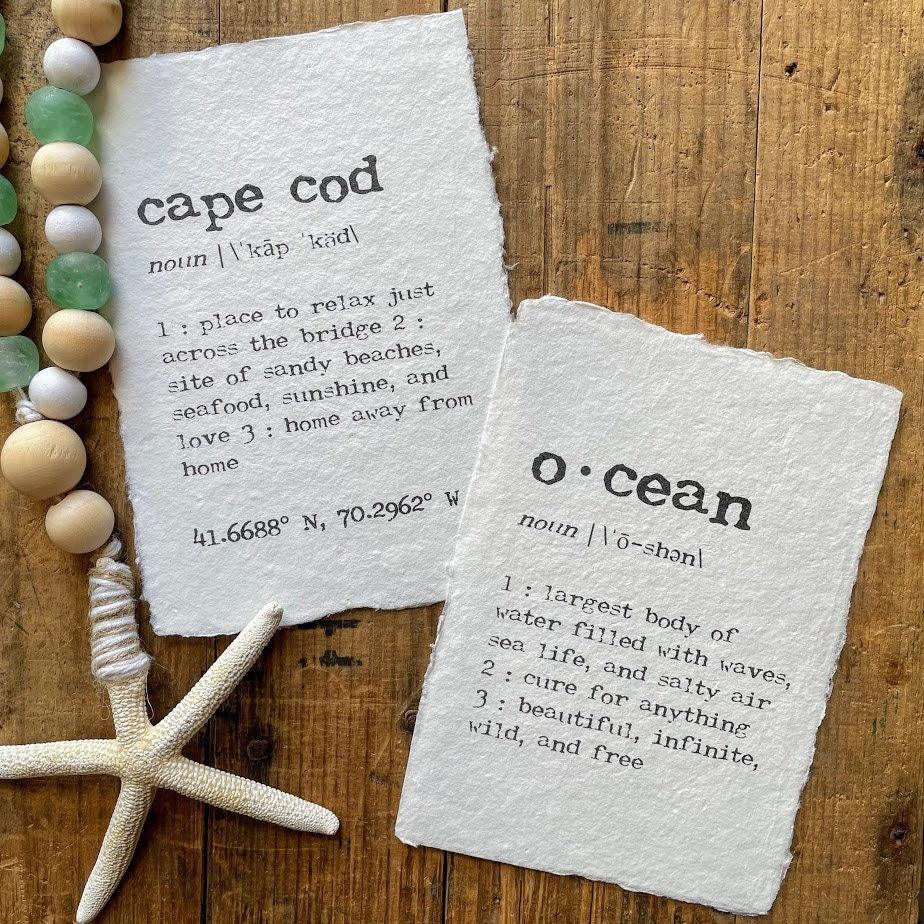 cape cod
noun | \ˈkāp ˈkäd\
1 : place to relax just
across the bridge 2 :
site of sandy beaches,
seafood, sunshine, and
love 3 : home away from
home
41.6688° N, 70.2962° W
o·cean
noun | \ˈō-shən\
1 : largest body of
water filled with waves,
sea life, and salty air
2 : cure for anything
3 : beautiful, infinite,
wild, and free